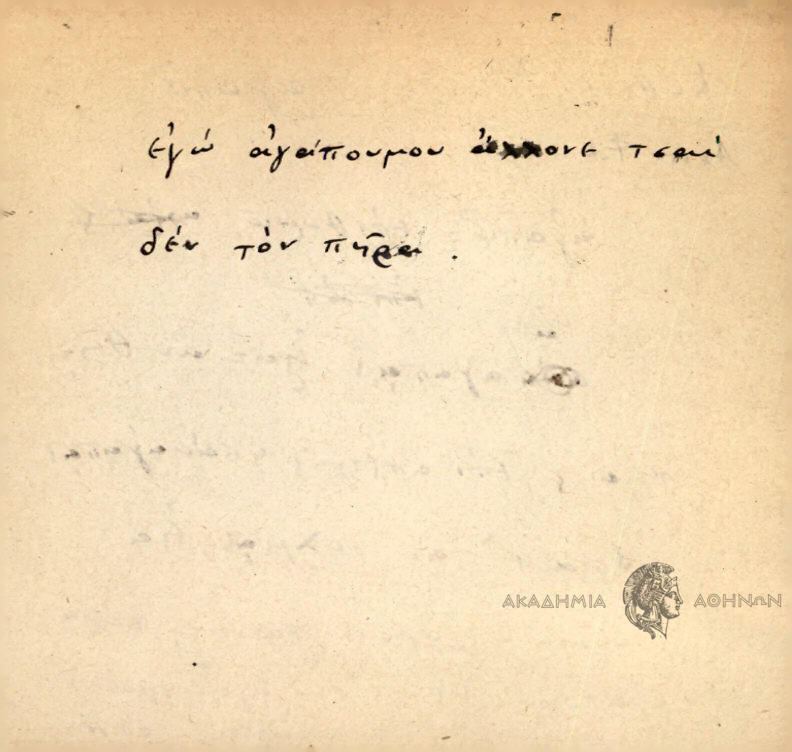 ἐγώ ἀγάπουμου ἄλλονε τσαί
δέν τὸν πῆρα.
ΑΚΑΔΗΜΙΑ ΑΘΗΝΩΝ